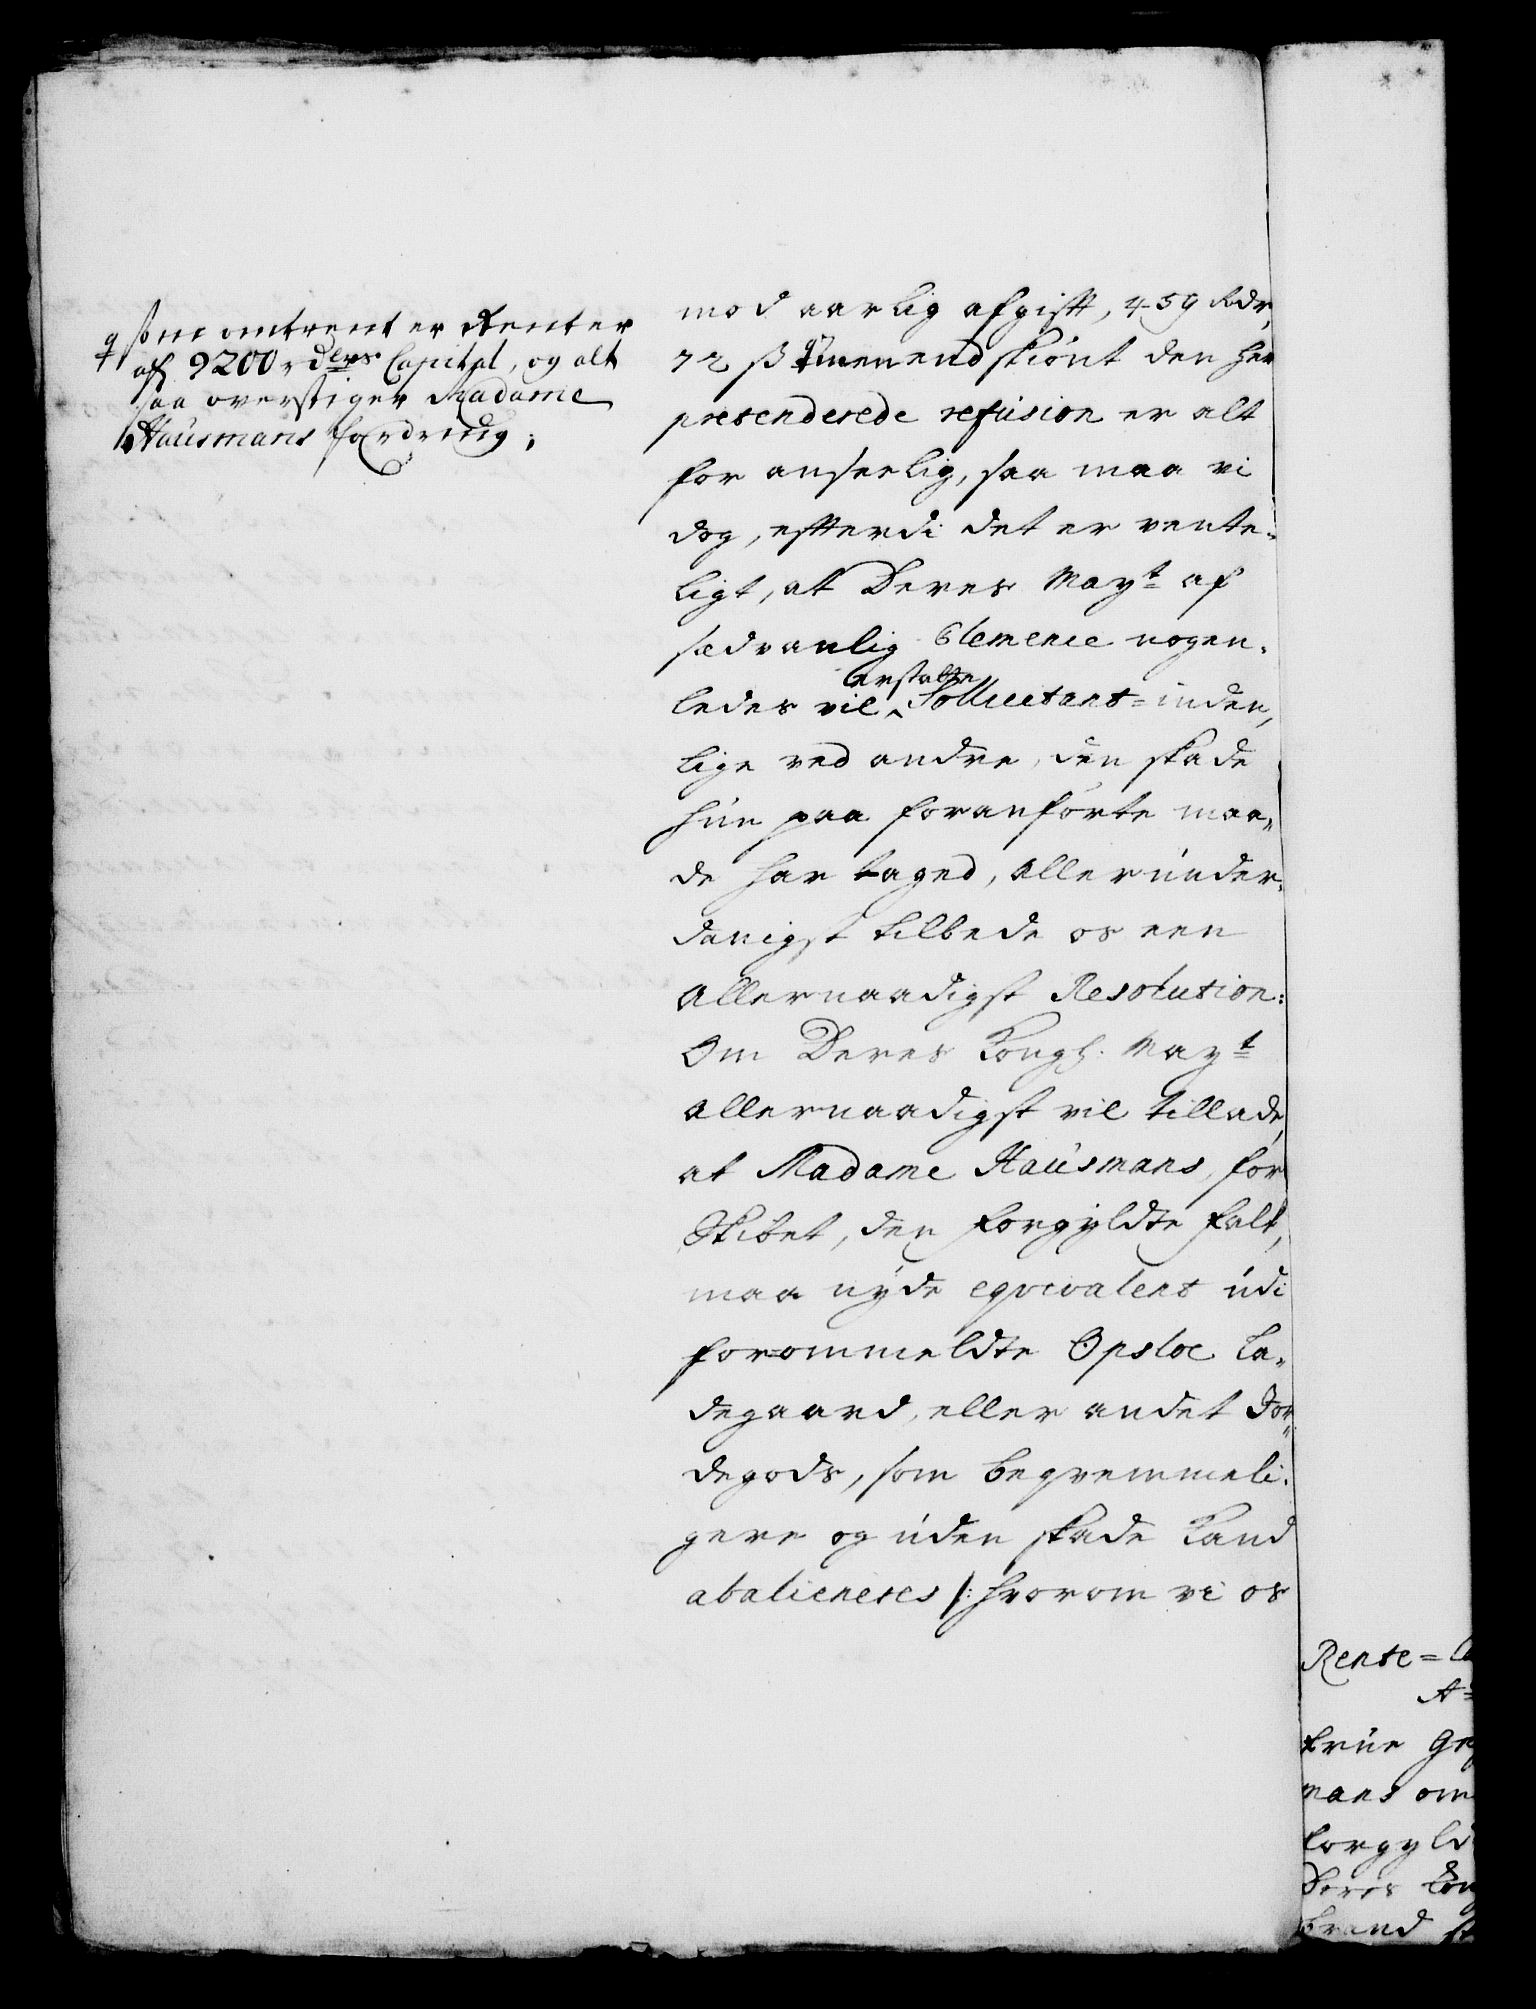 som omtrent er Renter
af 9200 rdlrs Capital, og alt
saa overstiger Madame
Hausmans fordring;
mod aarlig afgift, 459 Rdr,
72 ß men endskiønt den her
prætenderede refusion er alt
for anseelig, saa maa vi
dog, efterdi det er vente-
ligt, at Deres Mayt af
sædvanlig Clemence nogen-
ledes vil erstatte Sollicitant-inden,
lige ved andre, den skade
hun paa foranførte maa-
de har taged, allerunder-
danigst tilbede os een
allernaadigst Resolution:
Om Deres Kongl. Mayt
allernaadigst vil tillade,
at Madame Hausmans, for
Skibet, den forgyldte falk,
maa nyde eqvivalent udi
forommeldte Opsloe La-
degaard, eller andet Jor-
degods, som beqvemmeli-
gere og uden skade kand
abalieneres /: hvorom vi os
Rente=
frue
mans om
forgyld
Deres Kon
brand